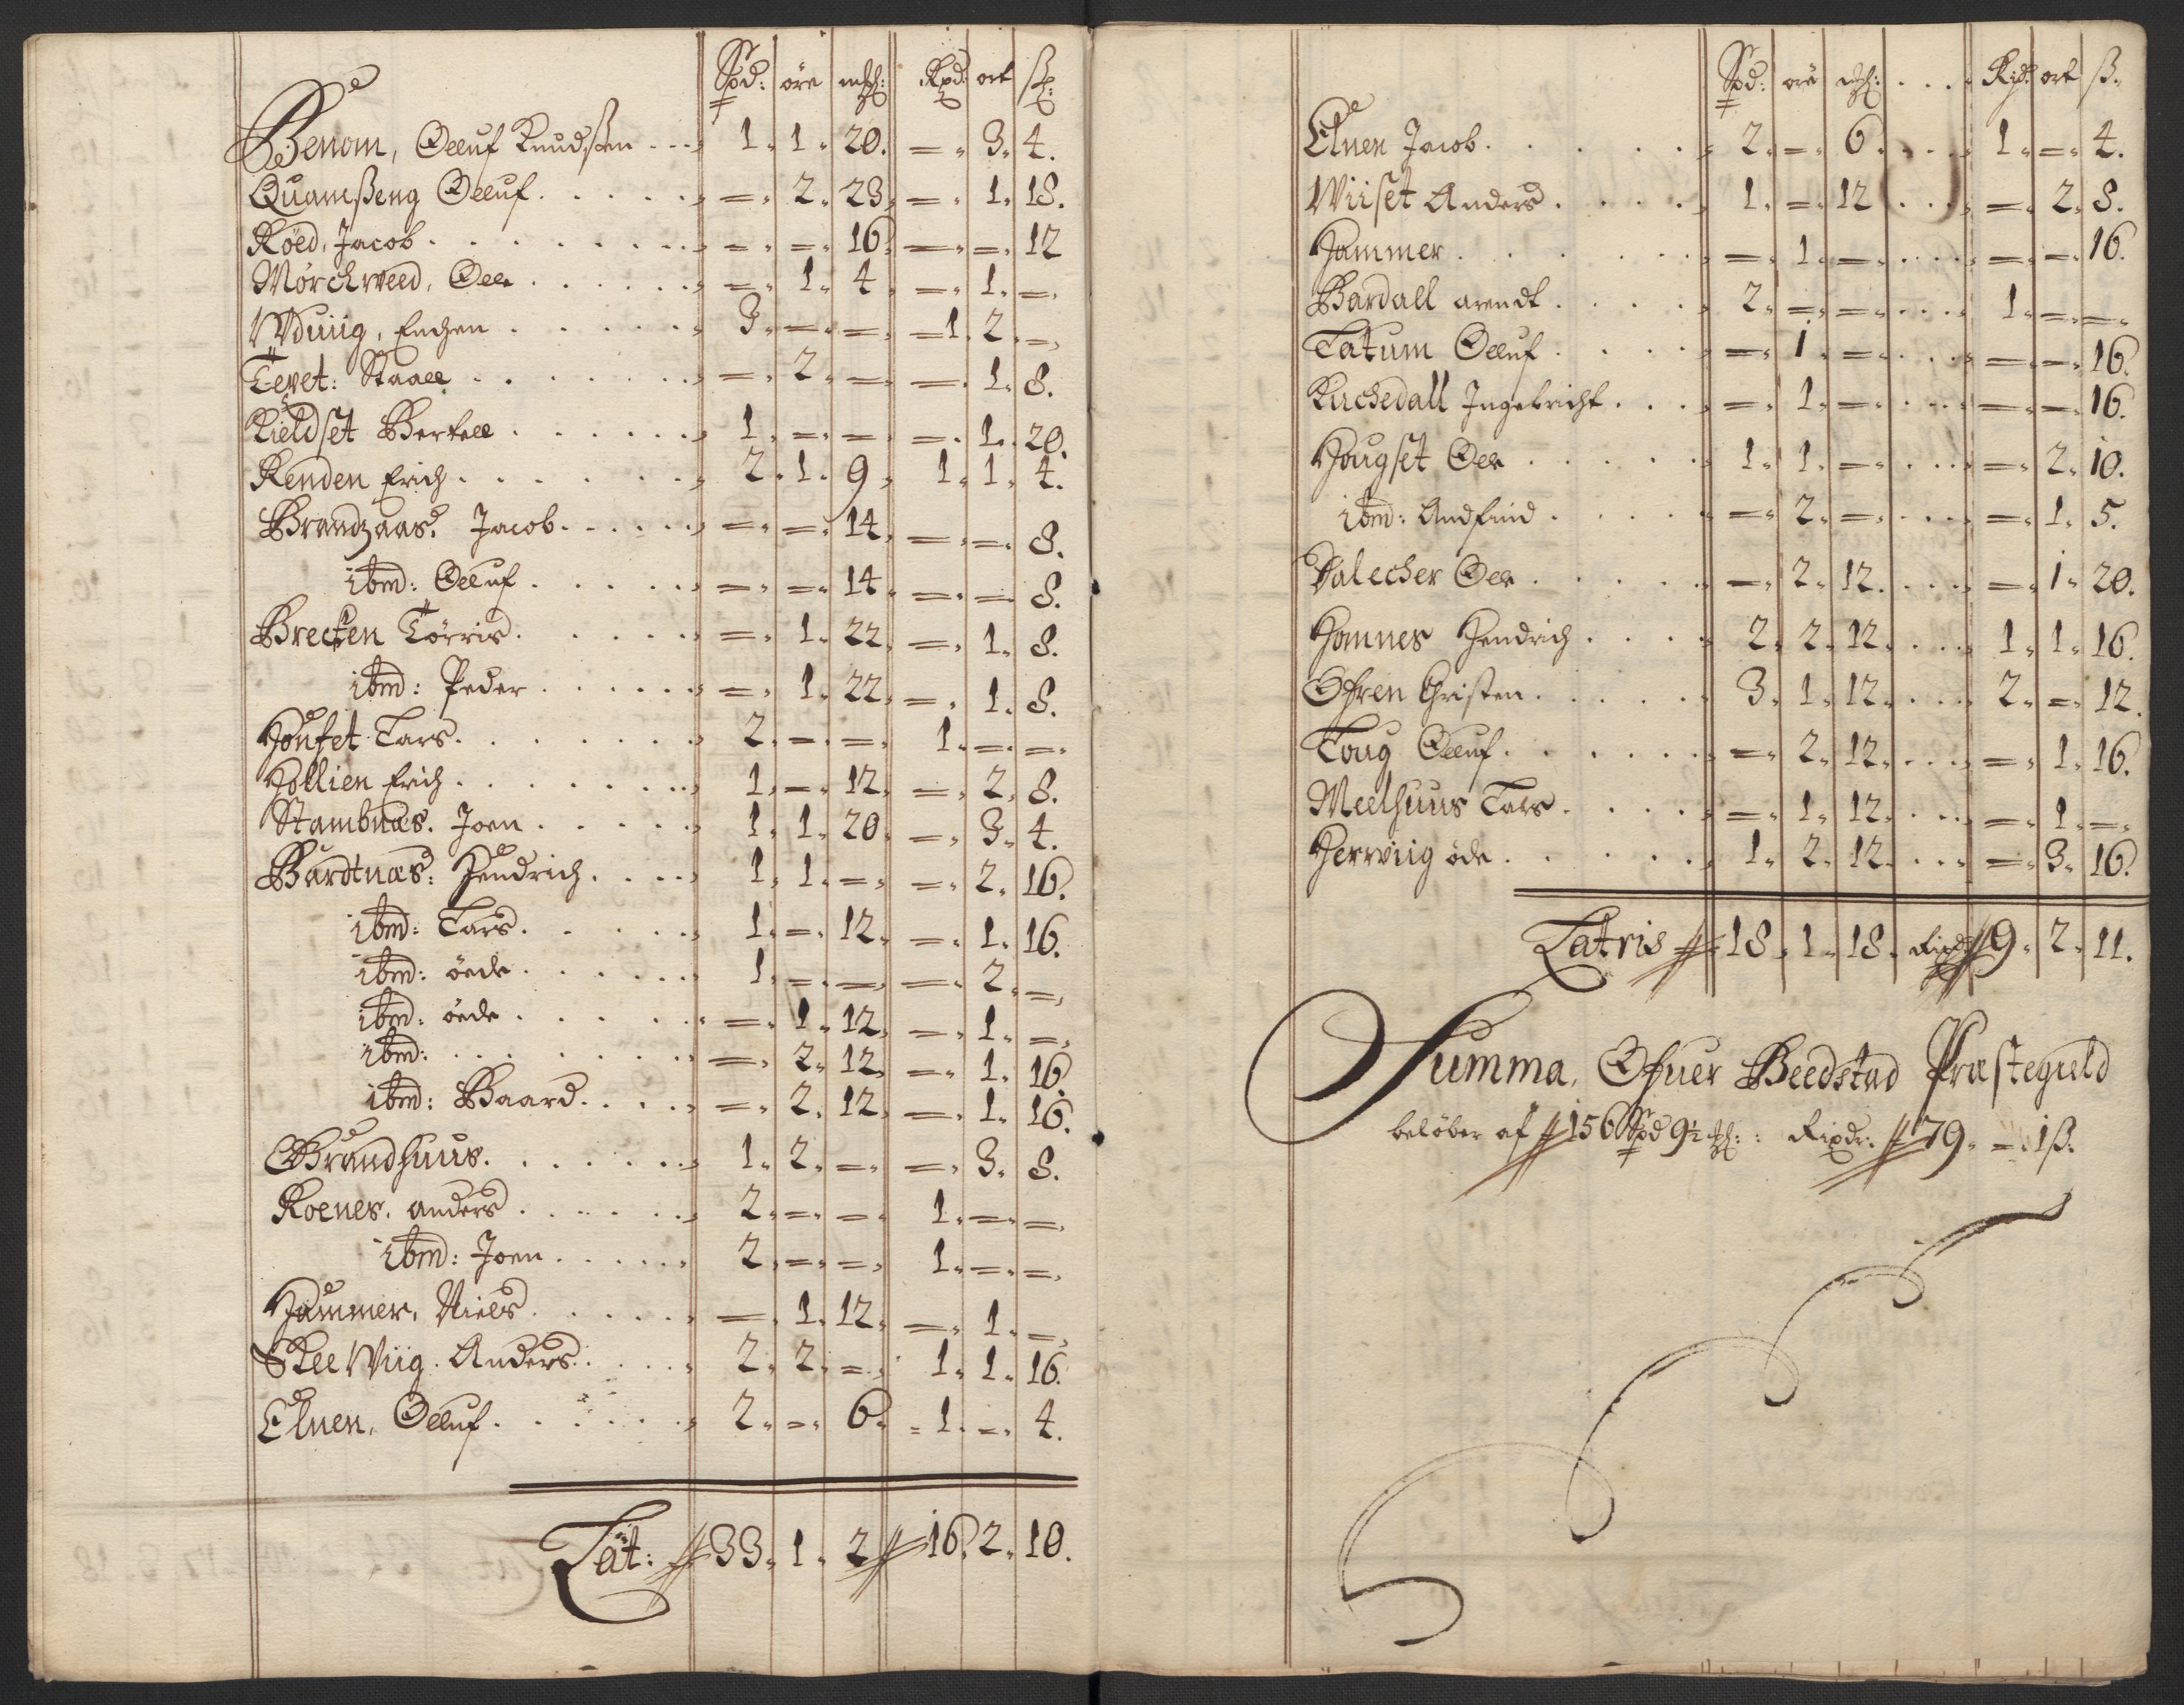 Spd: öre mkl: Rxd: ort ß:
Benom, Oeluf Knudßen 1. 1. 20. =. 3. 4.
Quamßeng Oeluf. =. 2. 23. =. 1. 18.
Röed, Jacob. =. =. 16. =. =. 12
Mörchweed, Oele =. 1. 4. =. 1. =.
Wduiig, Enchen 3. =. =. 1. 2. =.
Tevet: Staale =. 2. =. =. 1. 8.
Kieldset Bertell 1. =. =. =. 1. 20.
Renden Erich. 2. 1. 9. 1. 1. 4.
Brandzaas: Jacob. =. =. 14. =. =. 8.
ibm: Oeluf. =. =. 14. =. =. 8.
Brecken Törris. =. 1. 22. =. 1. 8.
ibm: Peder =. 1. 22. =. 1. 8.
Hönset Lars. 2. =. =. 1. =. =.
Hollien Erich. 1. =. 12. =. 2. 8.
Stambnæs. Joen 1. 1. 20. =. 3. 4.
Bardtnæs: Hendrich. 1. 1. =. =. 2. 16.
ibm: Lars. 1. =. 12. =. 1. 16.
ibm: öede. 1. =. =. =. 2. =.
ibm: öede =. 1. 12. =. 1. =.
ibm: =. 2. 12. =. 1. 16.
ibm: Baard. =. 2. 12. =. 1. 16.
Brandhuus. 1. 2. =. =. 3. 8.
Roenes. anders 2. =. =. 1. =. =.
ibm: Joen. 2. =. =. 1. =. =.
Hammer, Niels =. 1. 12. =. 1. =.
Slee Wiig. Anders. 2. 2. =. 1. 1. 16.
Elnen, Oeluf. 2. =. 6. 1. =. 4.
Lat: 33. 1. 2 16. 2. 10.
Spd: öre mkl: Rxd: ort ß.
Elnen Jacob. 2. =. 6. 1. =. 4.
Wiiset Anders. 1. =. 12 =. 2. 8.
Hammer. =. 1. =. =. =. 16.
Bardall arendt. 2. =. =. 1. =. =.
Tatum Oeluf. =. 1. =. =. =. 16.
Kirchedall Ingebricht. =. 1. =. =. =. 16.
Hougset Oele 1. 1. =. =. 2. 10.
ibm: Andfind. =. 2. =. =. 1. 5.
Dalecher Oele. =. 2. 12. =. 1. 20.
Homnes Hendrich. 2. 2. 12. 1. 1. 16.
Öfren Christen. 3. 1. 12. 2. =. 12.
Toug Oeluf. =. 2. 12. =. 1. 16.
Meelhuus Lars. =. 1. 12. =. 1. =.
Herwiig öde. 1. 2. 12. =. 3. 16.
Latris 18. 1. 18. Rixdr 9. 2. 11.
Summa, Ofuer Beedstad Præstegield
belöber af 156 Spd 9½ mkl: Rixdr. 79. =. 1ß.